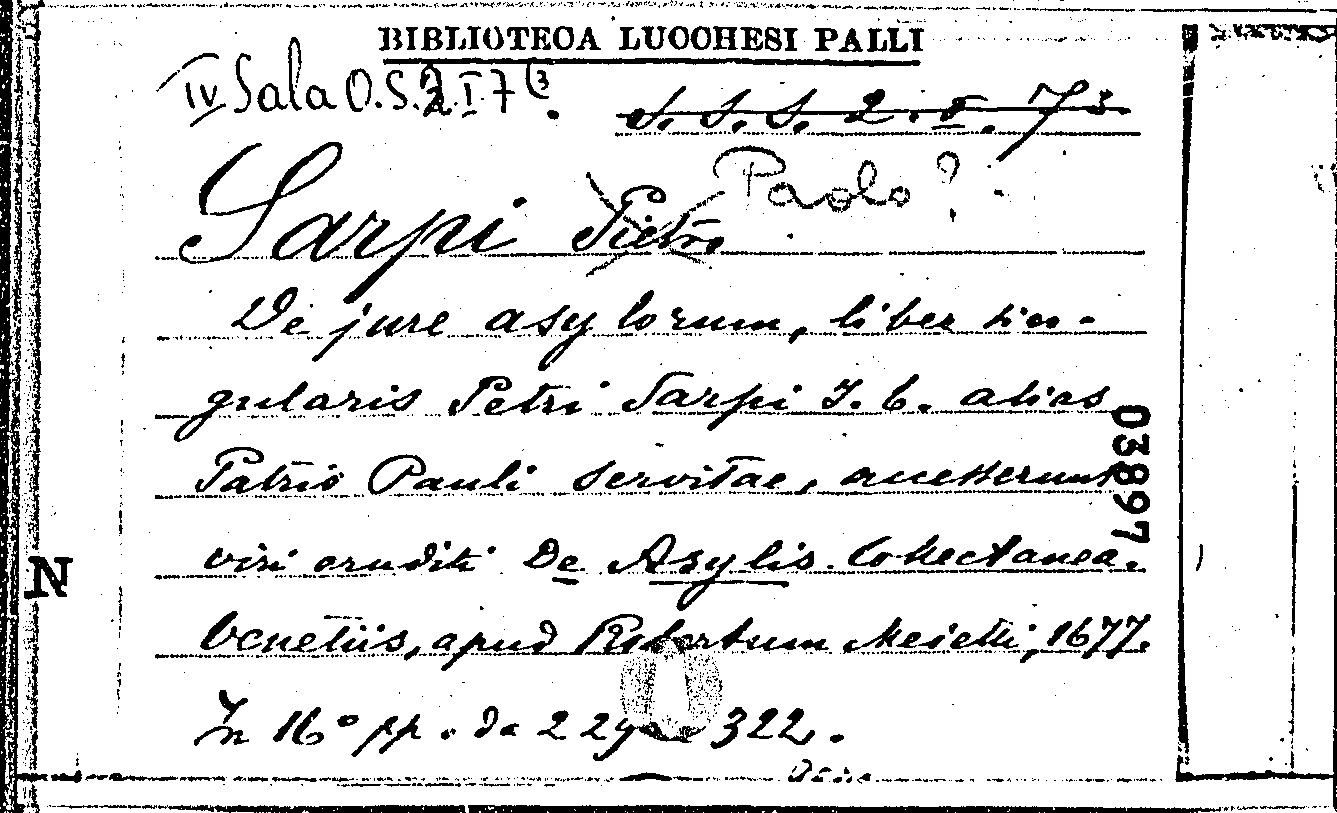 BIBLIOTECA LUCCHESI PALLI
IV Sala O.S. 2. I 7 (3.
S. S. S. 2. I. 7 3.
Sarpi Pietro Paolo?
De jure asylorum, liber sin-
gularis Petri Sarpi I. C. alias
Patris Pauli Servitae, accesserunt
viri eruditi De Asylis Collectanea.
Venetiis, apud Robertum Meietti, 1677.
In 16° pp. da 229 a 322.
03897
N